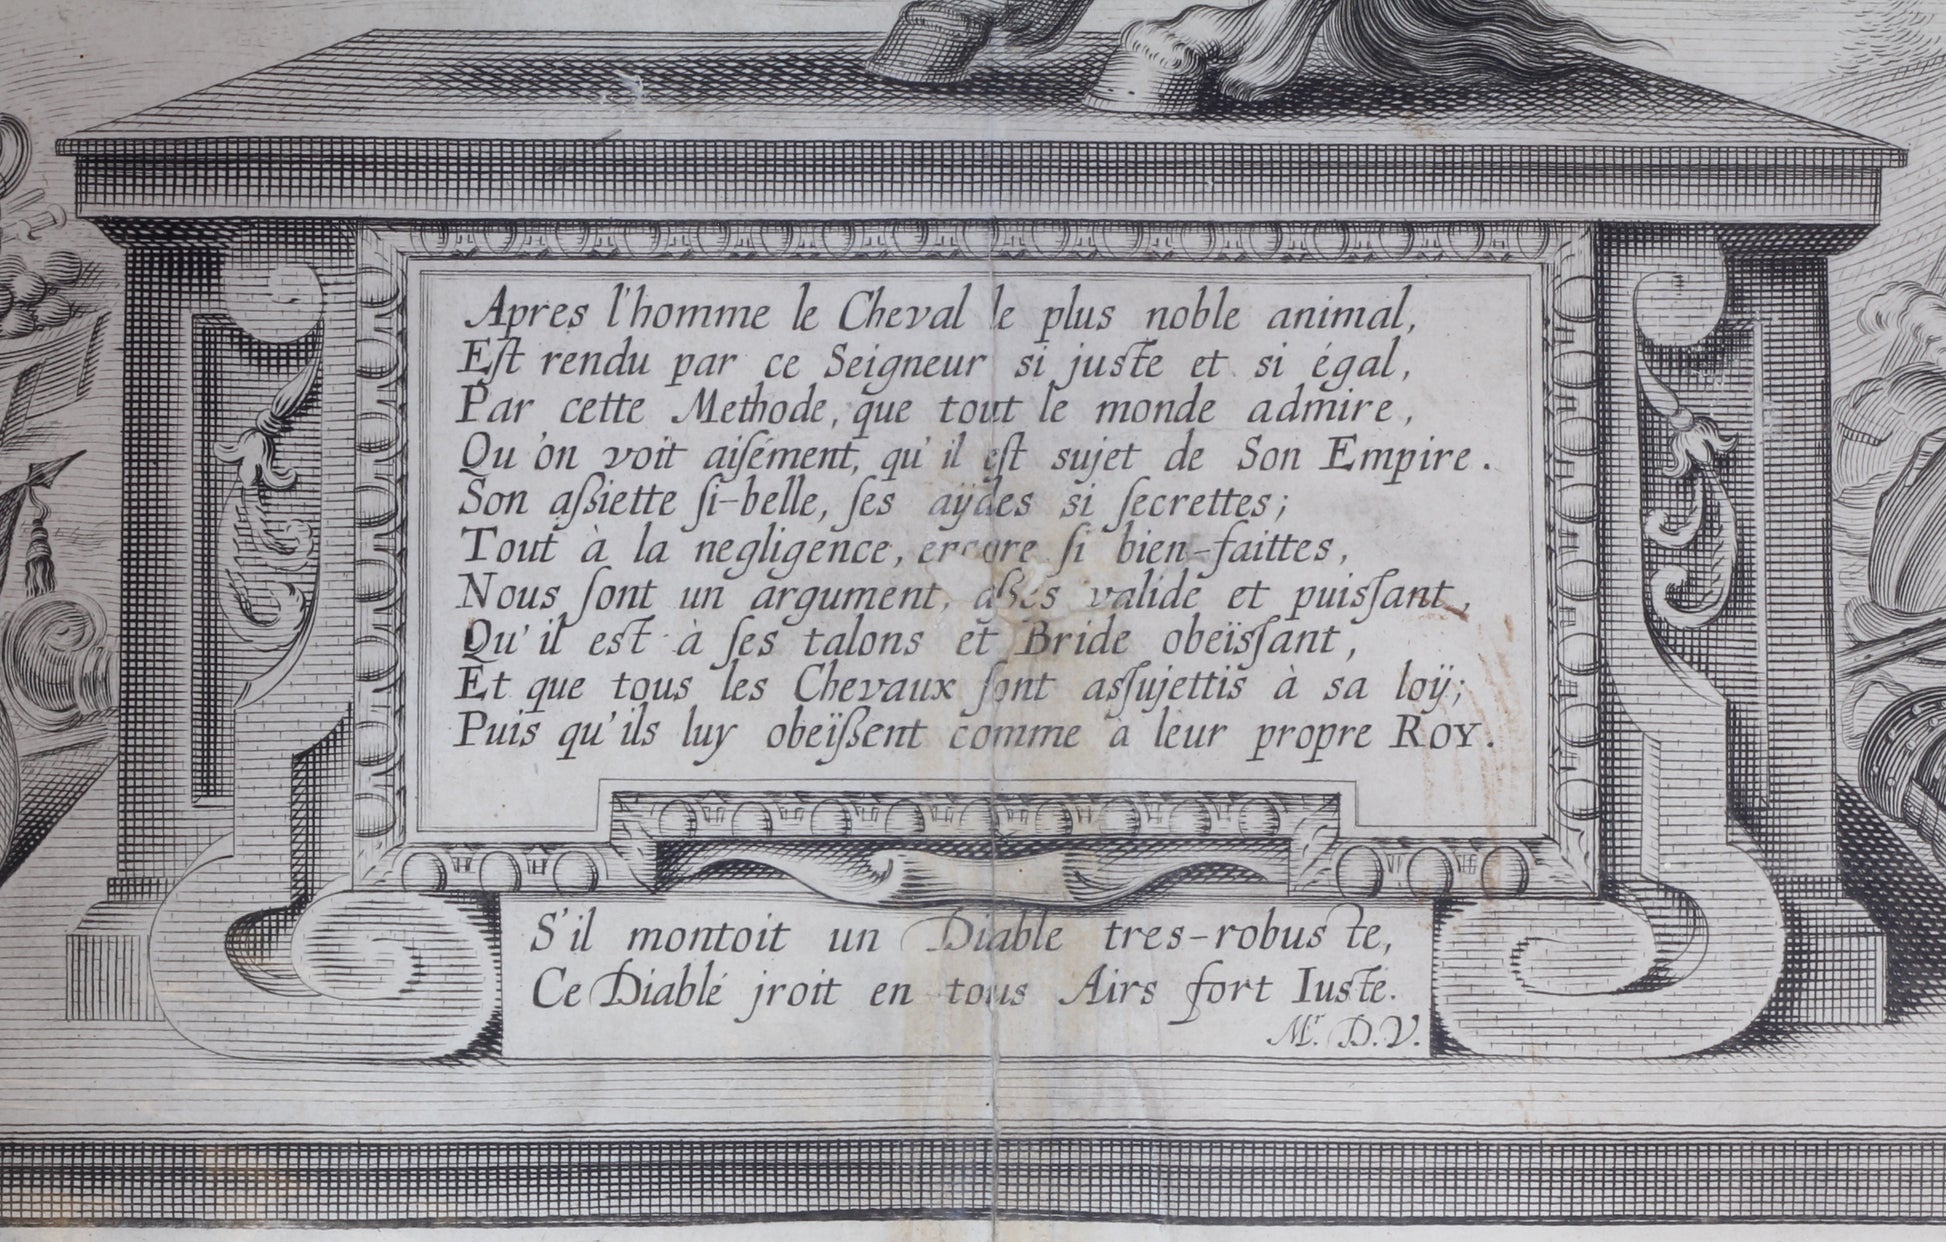 Apres l'homme le Cheval le plus noble animal,
Eſt rendu par ce Seigneur si juste et si égal,
Par cette Methode, que tout le monde admire,
Qu'on voit aiſément, qu'il eſt sujet de Son Empire.
Son aſsiette ſi-belle, ſes aÿdes si ſecrettes;
Tout à la negligence, encore ſi bien-faittes,
Nous ſont un argument, aſsés valide et puisſant,
Qu'il est à ſes talons et Bride obeïsſant,
Et que tous les Chevaux ſont asſujettis à sa loÿ;
Puis qu'ils luy obeïſsent comme a leur propre ROY.
S'il montoit un Diable tres-robuste,
Ce Diablé jroit en tous Airs fort Iuste.
Mr. D.V.